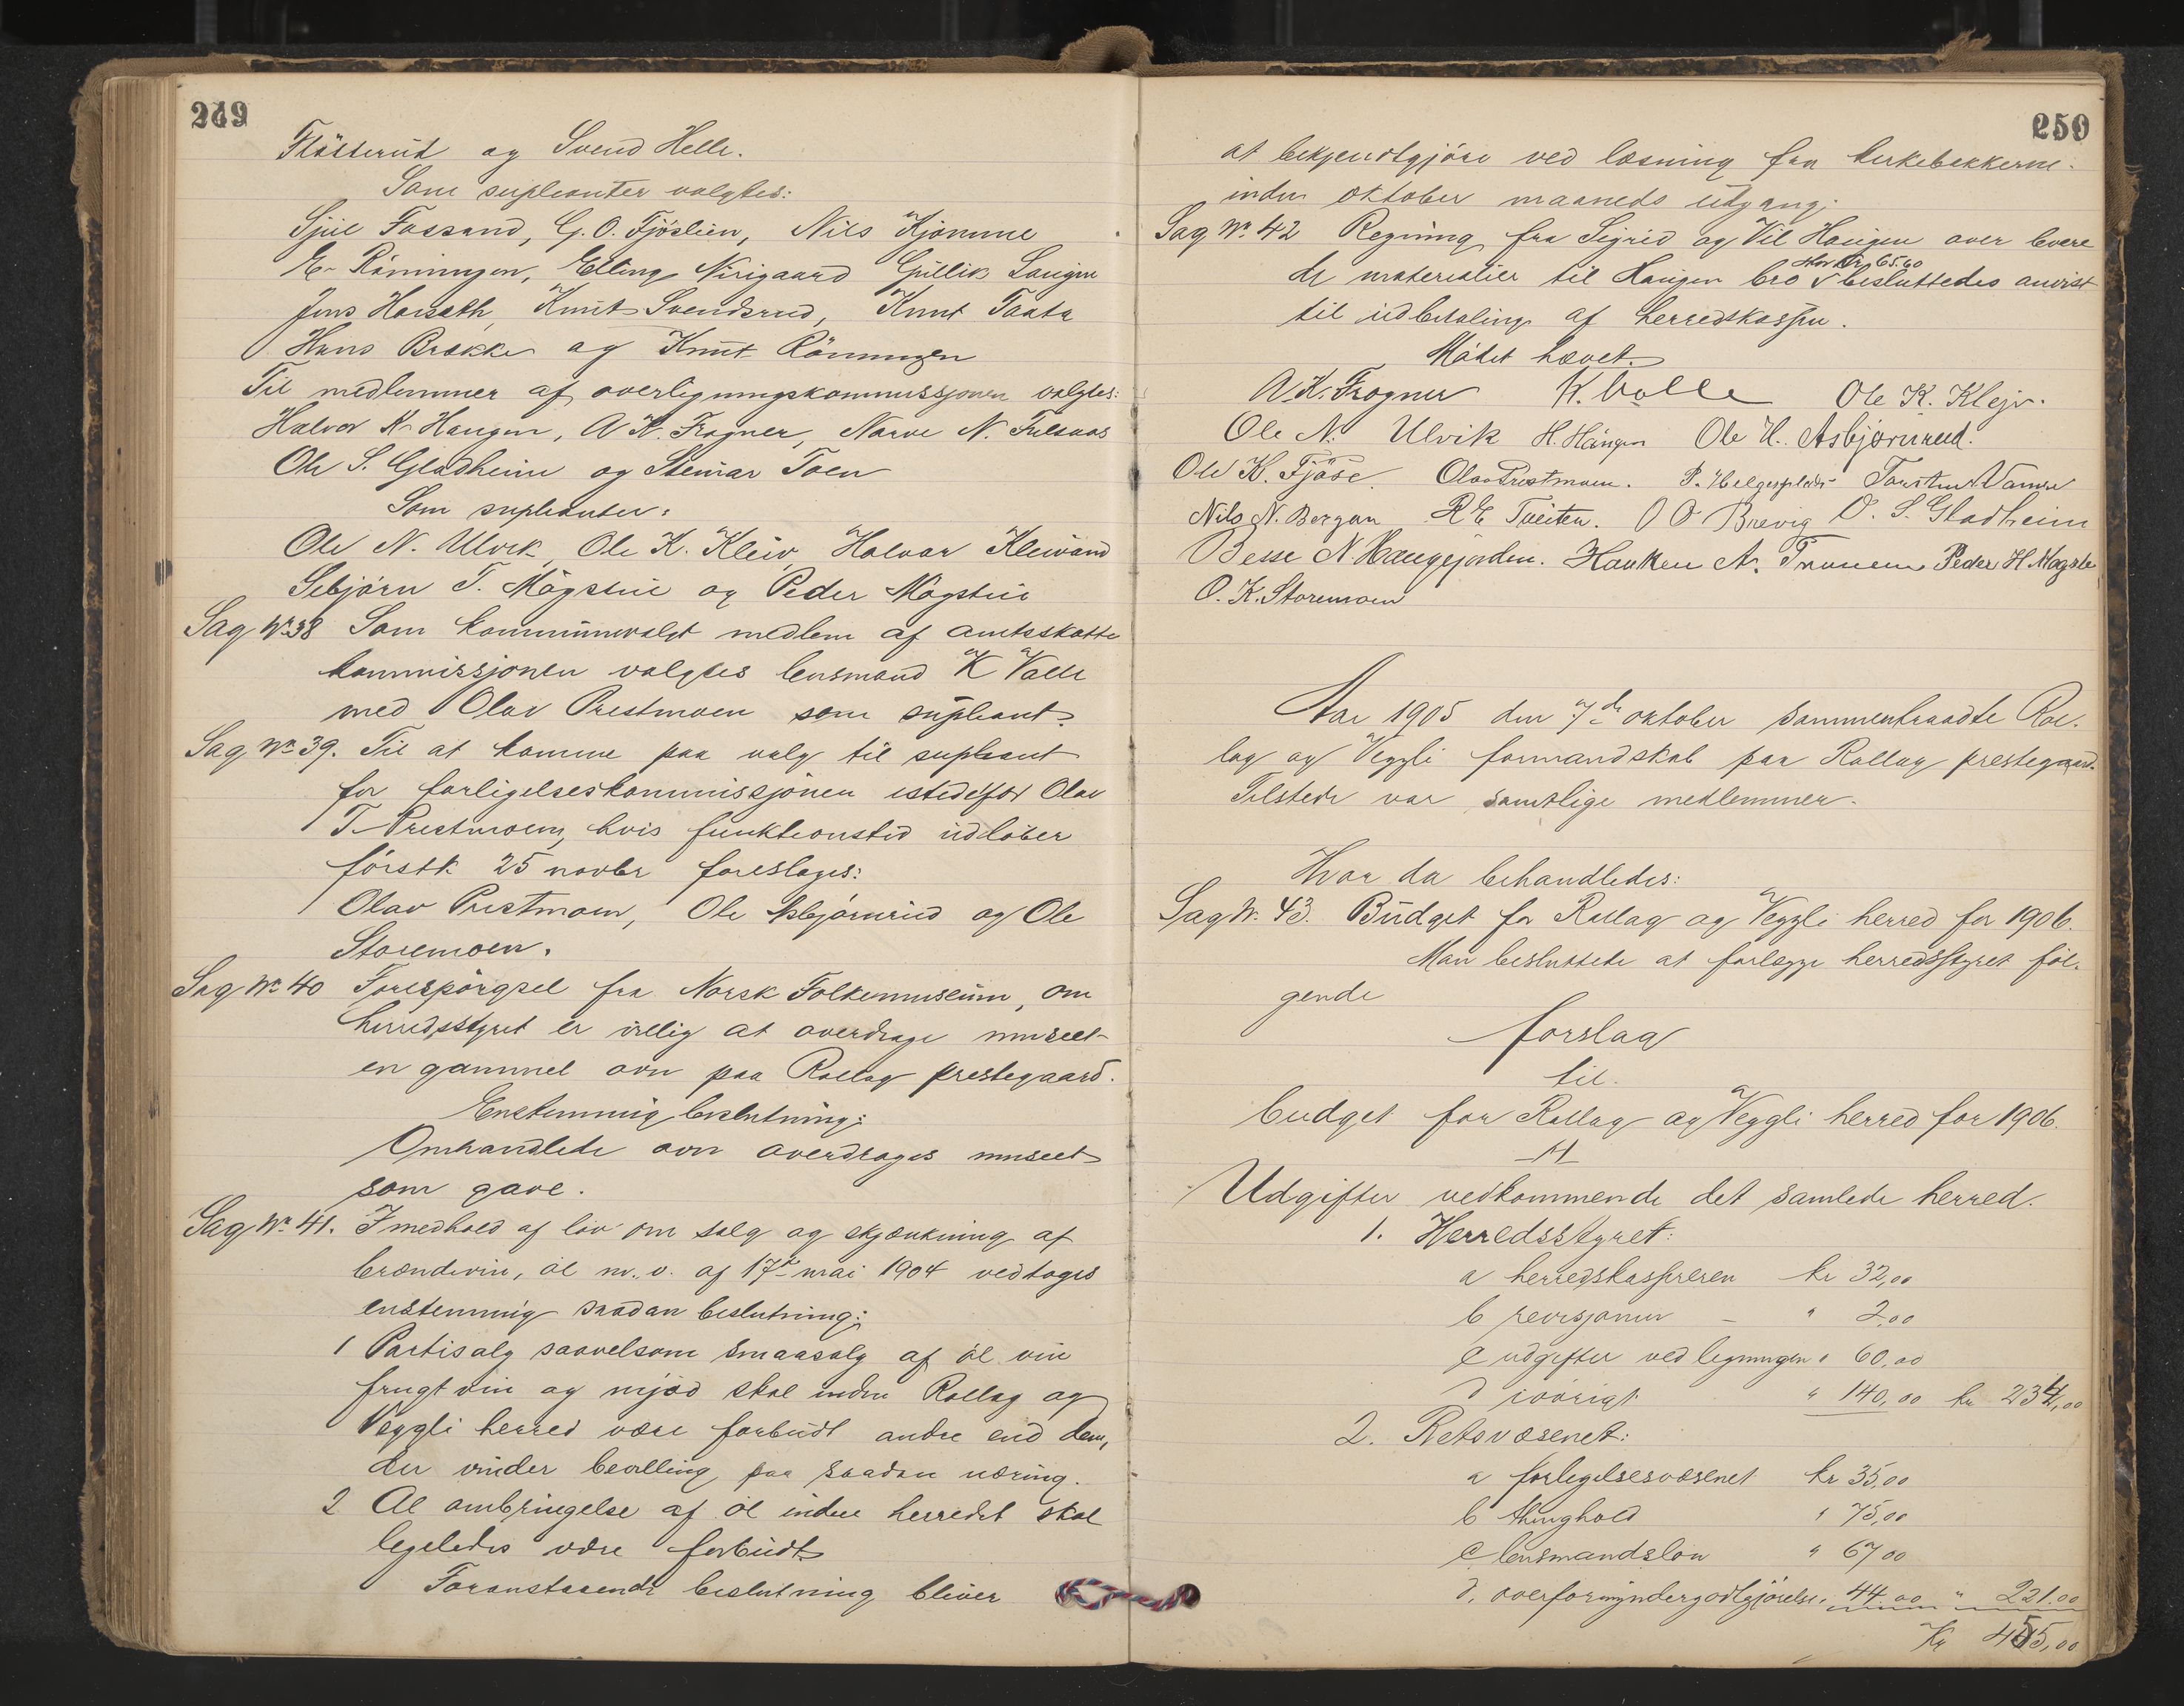 249
Flåtterud og Svend Helle.
Som supleanter valgtes:
Sjul Fossand, G. O. Fjöslien, Nils Kjomme
E. Röningen, Elling Nirigaard Gullik Laugen
Jens Harseth, Knut Svendsrud, Knut Taata
Hans Brække og Knut Röningen
Til medlemmer af overligningskommissjonen valgtes:
Halvor K. Haugen, A K. Frogner, Narve N. Fulsaas
Ole S. Gladheim og Steinar Toen
Som supleanter:
Ole N. Ulvik, Ole K. Kleiv, Halvor Kleivand
Sebjörn T. Mögstue og Peder Mögstue
Sag No 38 Som kommunevalgt medlem af amtsskatte
kommissjonen valgtes lensmand K Valle
med Olav Prestmoen som supleant.
Sag No 39. Til at komme paa valg til supleant
for forligelseskommissjonen istedetfor Olav
T. Prestmoen, hvis funktionstid udlöber
förstk 25 novbr foreslages:
Olav Prestmoen, Ole Asbjörnrud og Ole
Storemoen.
Sag No 40 Forespörgsel fra Norsk Folkemuseum, om
herredsstyret er villig at overdrage museet
en gammel ovn paa Rollag prestegaard.
Enstemmig beslutning:
Omhandlede ovn overdrages museet
som gave.
Sag No 41. I medhold af lov om salg og skjænkning af
brændevin, öl m. v. af 17de mai 1904 vedtoges
enstemmig saadan beslutning:
1 Partisalg saavelsom smaasalg af öl vin
frugtvin og mjöd skal inden Rollag og
Veggli herred være forbudt andre end dem,
der vinder bevilling paa saadan næring.
2 Al ombringelse af öl inden herredet skal
ligeledes være forbudt
Foranstaaende beslutning bliver
250
at bekjendtgjöre ved læsning fra kirkebakkerne
inden oktober maaneds udgang.
Sag No 42 Regning fra Sigrid og Vil Haugen over levere
stor kr. 65.60
de materialier til Haugen bro besluttedes anvist
til udbetaling af herredskassen.
Mödet hævet.
A. K. Frogner K. Valle Ole K. Kleiv.
Ole N. Ulvik H. Haugen Ole H. Asbjørnrud.
Ole K. Fjöse. Olav Prestmoen. P. Helgesplads Torsten Vamre
Nils N. Bergan R E Tveiten. O O Brevig O. S. Gladheim
Besse N. Haugejorden. Haaken A. Tronen Peder H. Mogste
O. K. Storemoen
Aar 1905 den 7de oktober sammentraadte Rol-
lag og Veggli formandskab paa Rollag prestegaard.
Tilstede var samtlige medlemmer.
Hvor da behandledes:
Sag No 43. Budget for Rollag og Veggli herred for 1906.
Man besluttede at forlægge herredsstyret föl-
gende
forslag
til
budget for Rollag og Veggli herred for 1906.
A
Udgifter vedkommende det samlede herred.
1. Herredsstyret:
a herredskasseren kr 32,00
b revisjonen – " 2,00
c udgifter ved ligningen " 60,00
d iövrigt " 140,00 kr 234,00
2. Retsvæsenet:
a forligelsesvæsenet kr 35,00
b thinghold " 75,00
c lensmandslön " 67,00
d. overformyndergodtgjörelse " 44,00 " 221.00
Kr 455,00